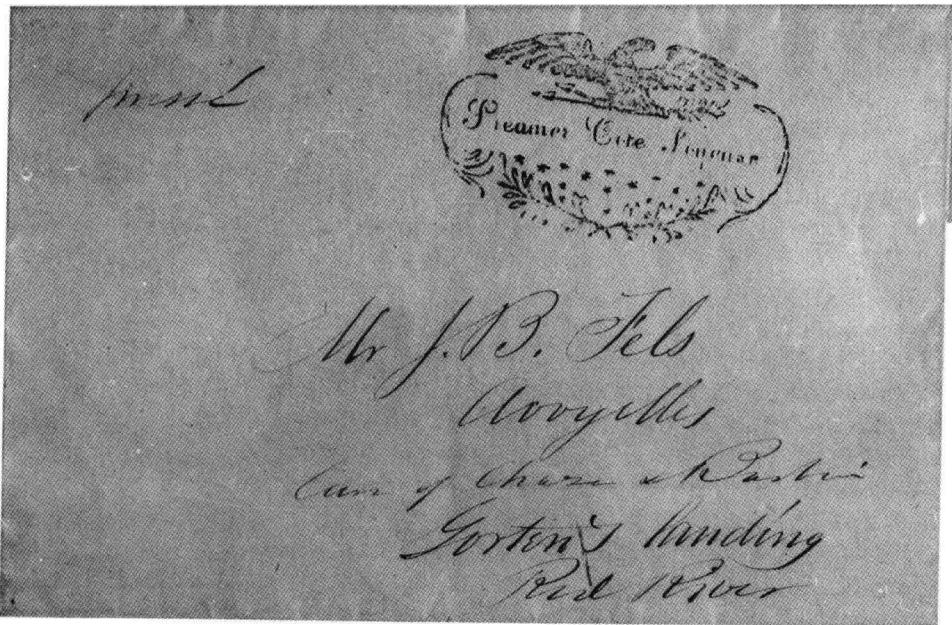 Steamer Cote Joyeuse
Mr J. B. Fels
Avoyelles
Care of Chase &
Gorton's Landing
Red River